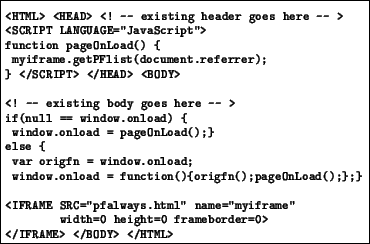 <HTML> <HEAD> <! -- existing header goes here -- >
<SCRIPT LANGUAGE="JavaScript">
function pageOnLoad() {
 myiframe.getPFlist(document.referrer);
} </SCRIPT> </HEAD> <BODY>

<! -- existing body goes here -- >
if(null == window.onload) {
 window.onload = pageOnLoad();}
else {
 var origfn = window.onload;
 window.onload = function(){origfn();pageOnLoad();};}

<IFRAME SRC="pfalways.html" name="myiframe"
        width=0 height=0 frameborder=0>
</IFRAME> </BODY> </HTML>